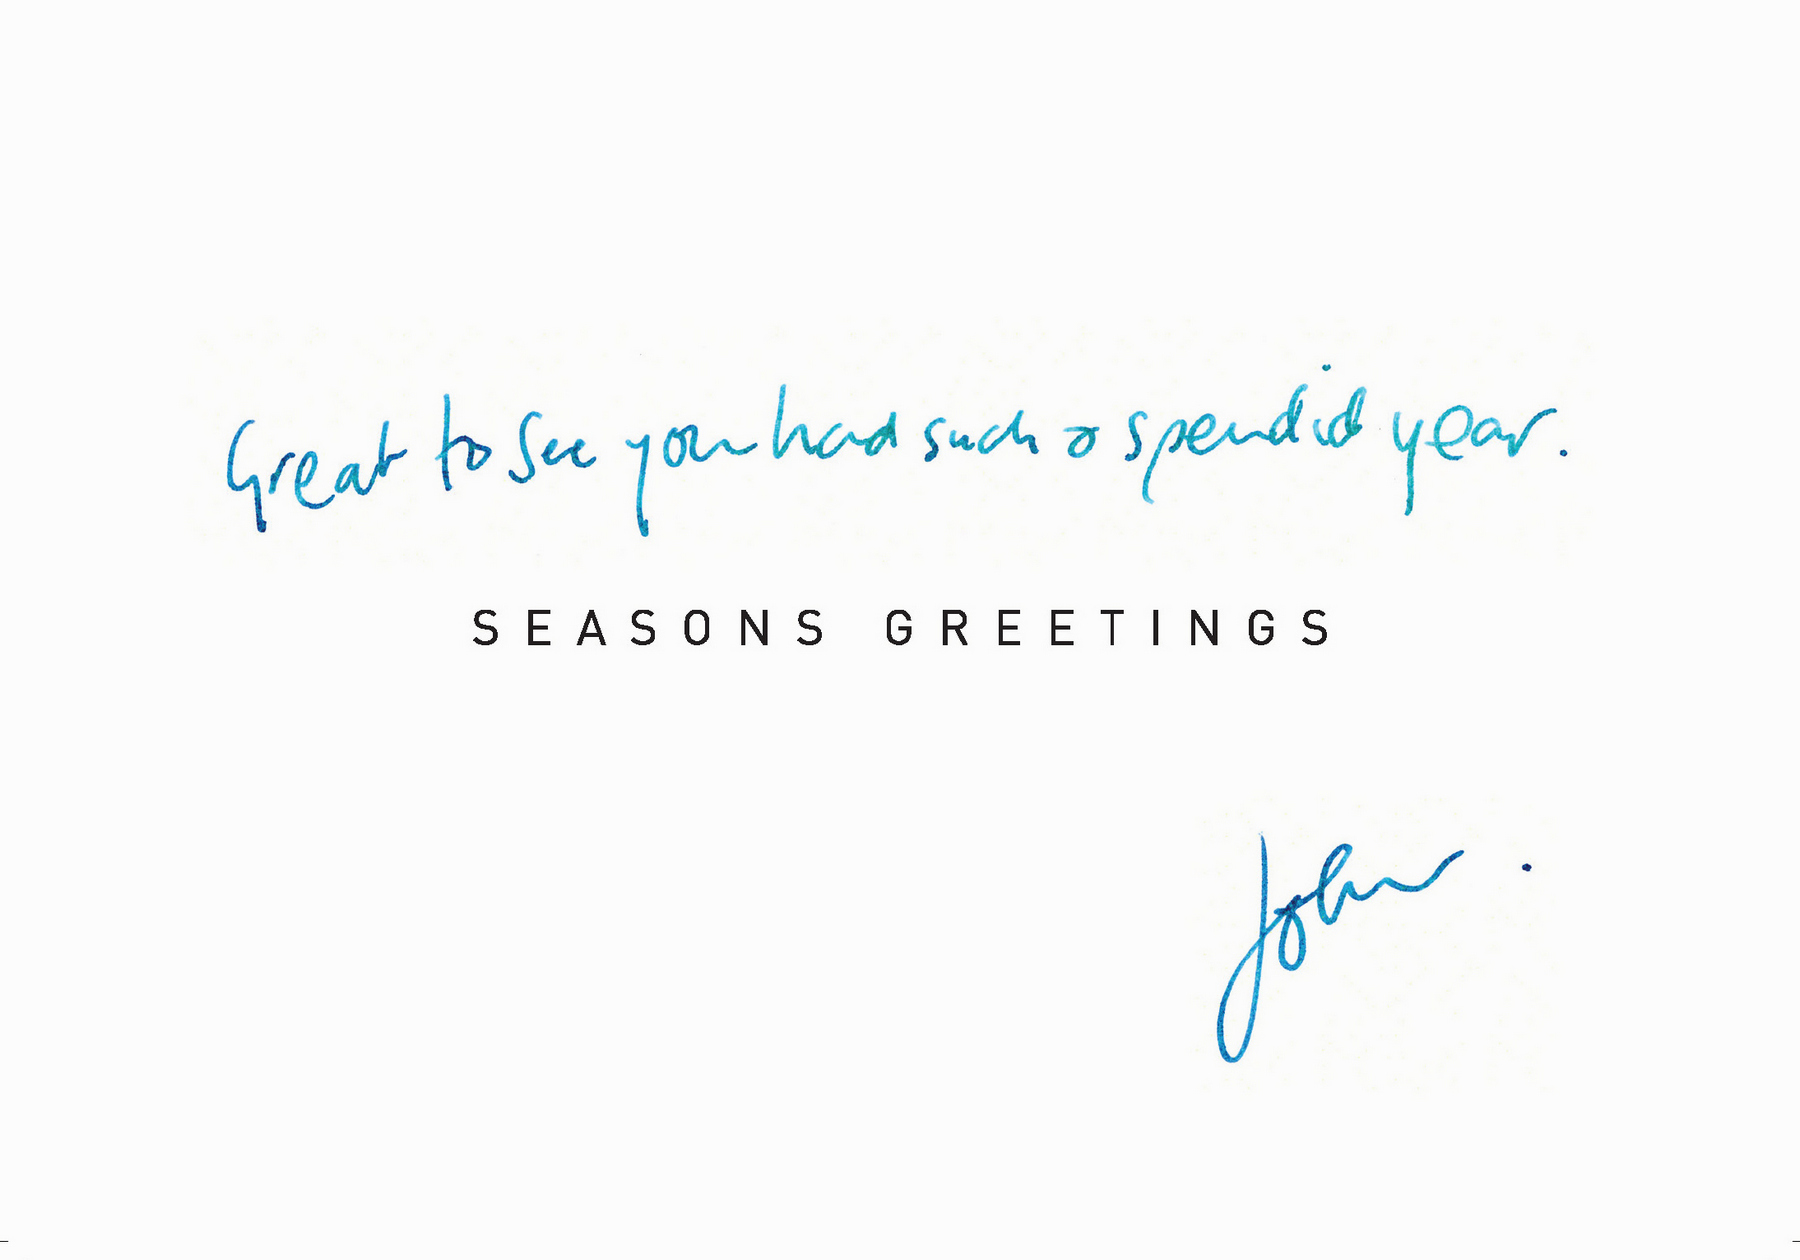 Great to see you had such a spendid year.
SEASONS GREETINGS
John.